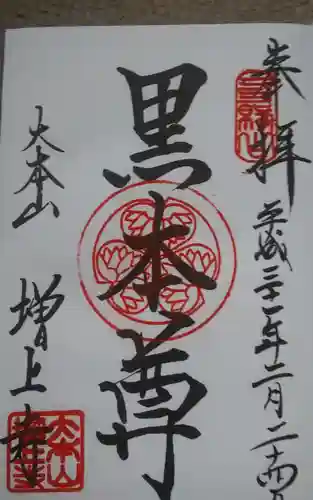 奉拝
平成三十一年二月二十四日
黒本尊
大本山
増上寺
大本山